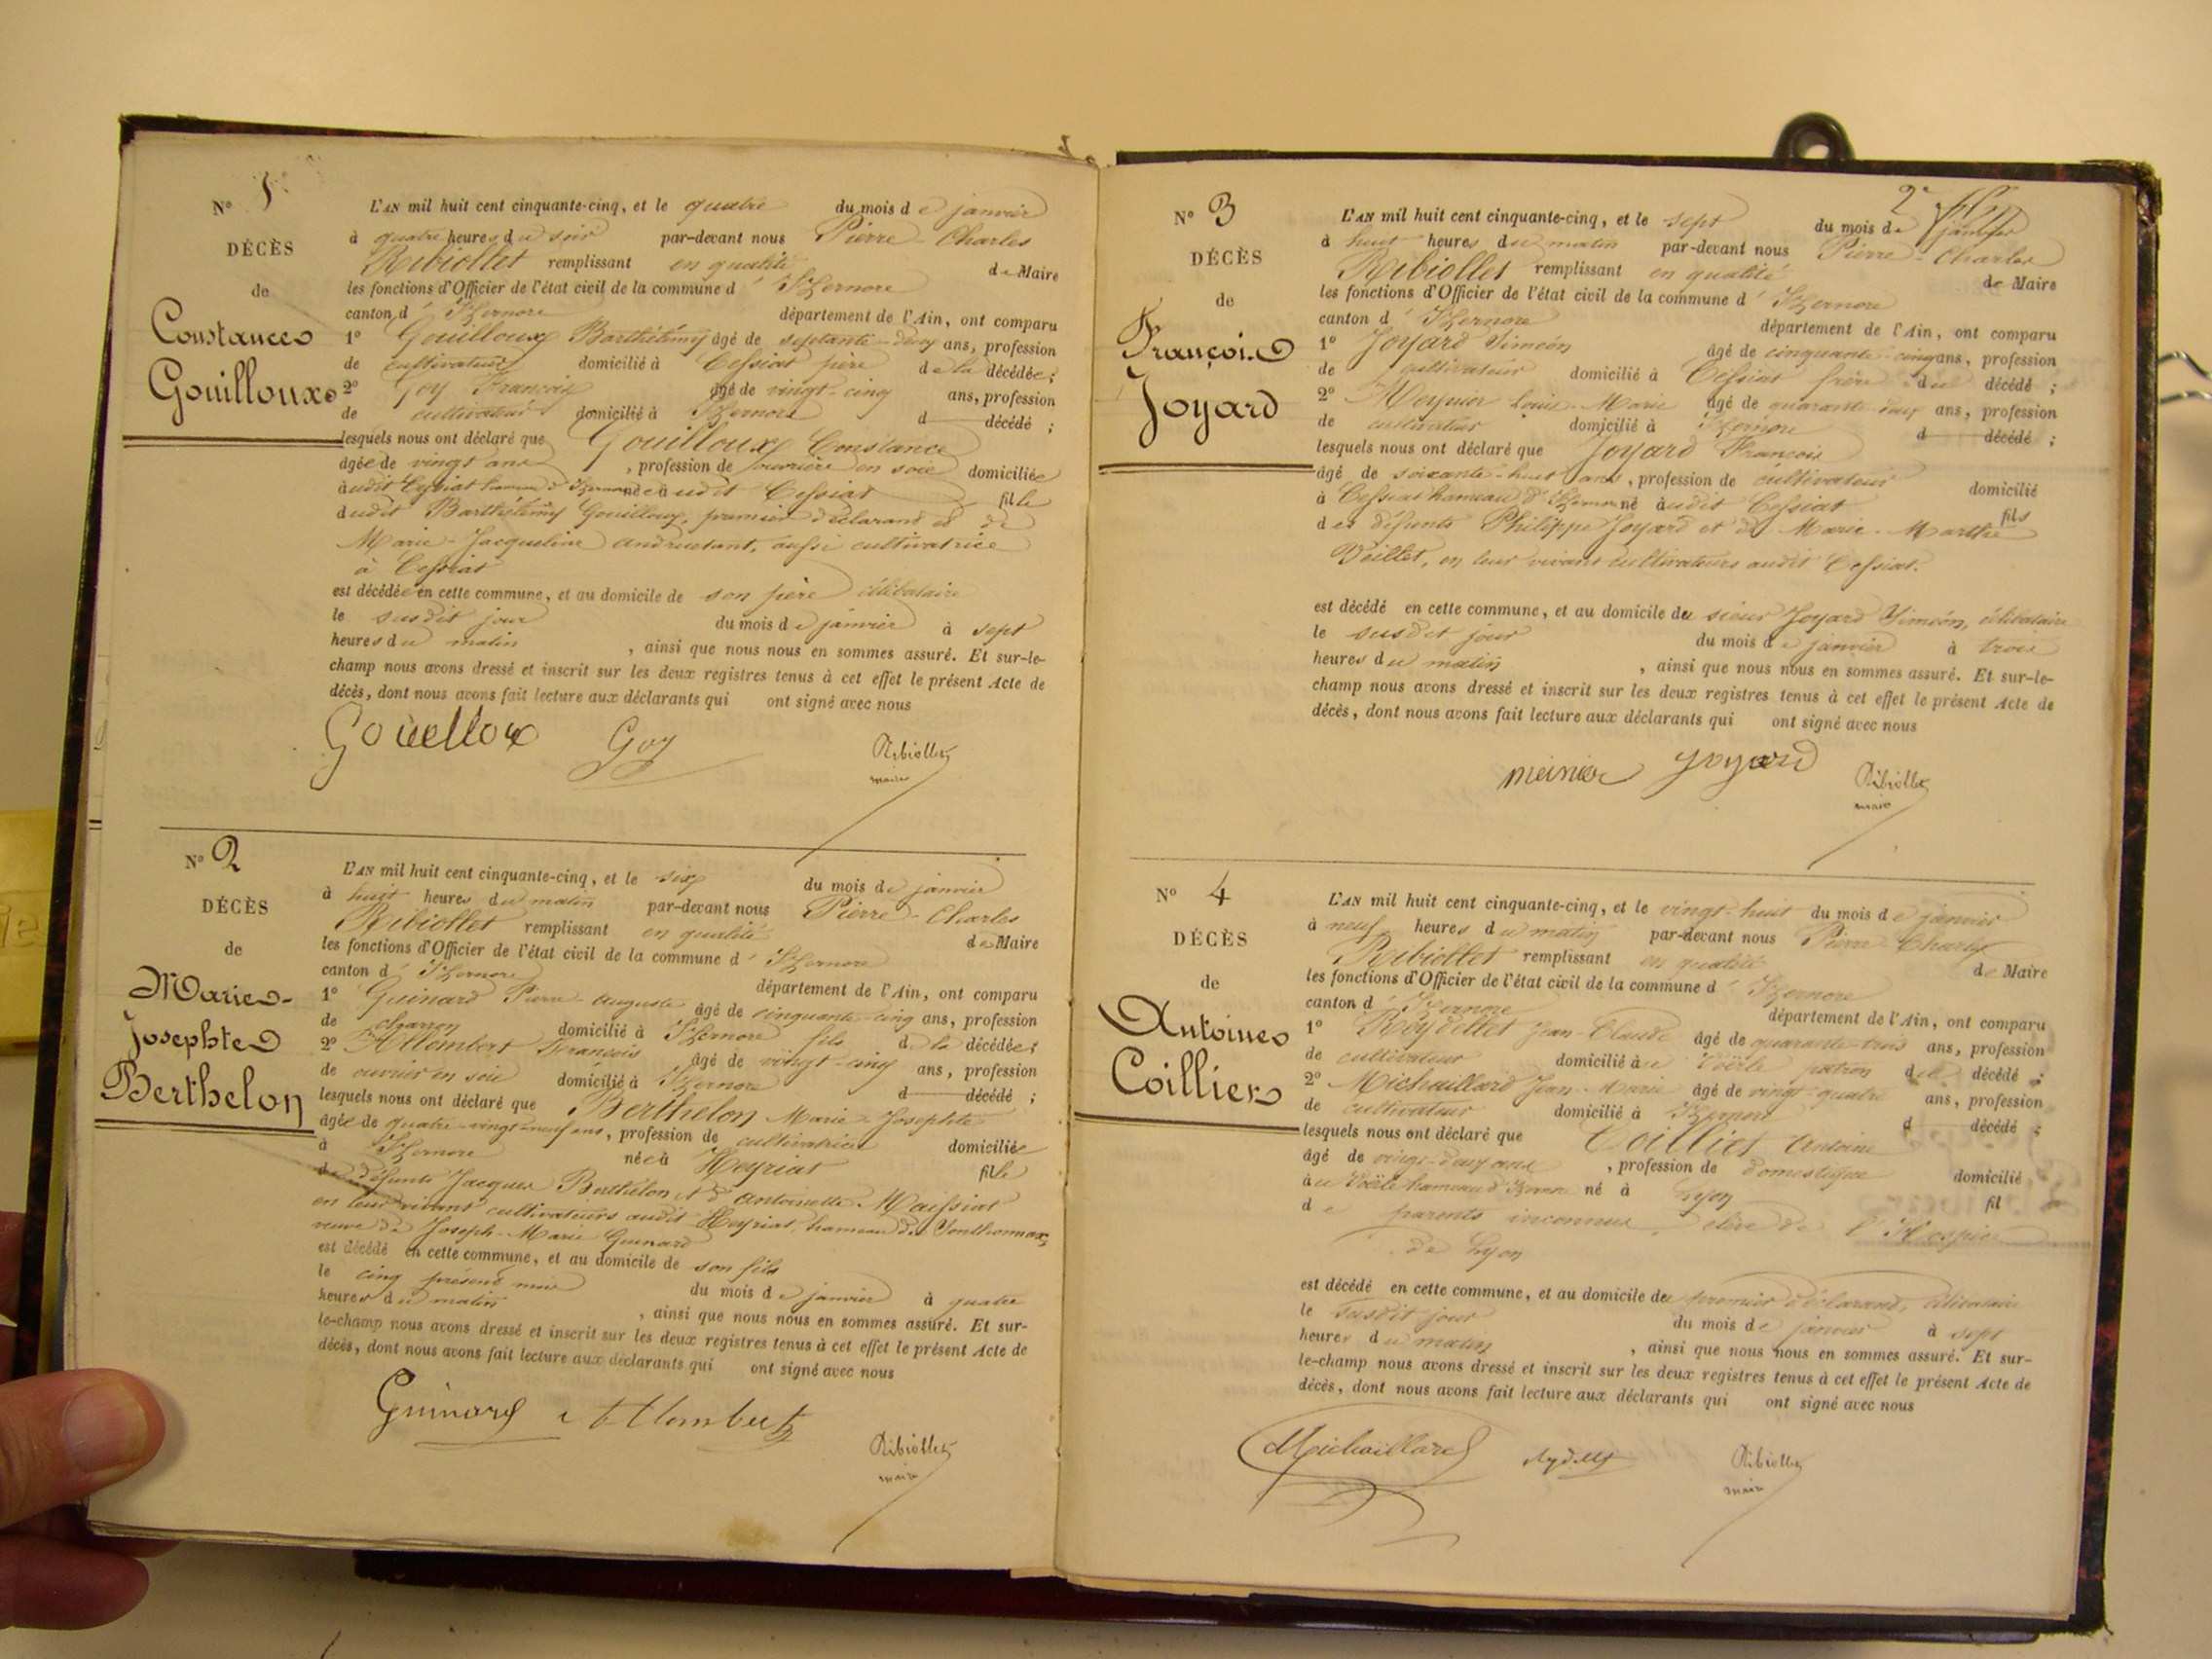 N° 1
DÉCÈS
de
Constance
Gouilloux
L'AN mil huit cent cinquante-cinq, et le quatre du mois de janvier
à quatre heures du soir par-devant nous Pierre-Charles
Ribiollet remplissant en qualité de Maire
les fonctions d'Officier de l'état civil de la commune d'Izernore
canton d'Izernore département de l'Ain, ont comparu
1° Gouilloux Barthélémy âgé de septante-deux ans, profession
de cultivateur domicilié à Cessiat père de la décédée;
2° Goy François âgé de vingt-cinq ans, profession
de cultivateur domicilié à Izernore d décédé ;
lesquels nous ont déclaré que Gouilloux Constance
âgée de vingt ans, profession de ouvrière en soie domiciliée
audit Cessiat hameau d'Izernore née audit Cessiat fille
dudit Barthélémy Gouilloux, premier déclarant et de
Marie-Jacqueline Andruetant, aussi cultivatrice
à Cessiat
est décédée en cette commune, et au domicile de son père célibataire
le susdit jour du mois de janvier à sept
heures du matin, ainsi que nous nous en sommes assuré. Et sur-le-
champ nous avons dressé et inscrit sur les deux registres tenus à cet effet le présent Acte de
décès, dont nous avons fait lecture aux déclarants qui ont signé avec nous
Gouellox Goy Ribiollet
maire
N° 2
DÉCÈS
de
Marie-
Josephte
Berthelon
L'AN mil huit cent cinquante-cinq, et le six du mois de janvier
à huit heures du matin par-devant nous Pierre-Charles
Ribiollet remplissant en qualité de Maire
les fonctions d'Officier de l'état civil de la commune d'Izernore
canton d'Izernore département de l'Ain, ont comparu
1° Guinard Pierre-Auguste âgé de cinquante-cinq ans, profession
de charron domicilié à Izernore fils de la décédée;
2° Allombert François âgé de vingt-cinq ans, profession
de ouvrier en soie domicilié à Izernore d décédé ;
lesquels nous ont déclaré que Berthelon Marie-Josephte
âgée de quatre-vingt-neuf ans, profession de cultivatrice domiciliée
à Izernore née à Heyriat fille
de défunts Jacques Berthelon et d'Antoinette Maissiat
en leur vivant cultivateurs audit Heyriat, hameau de Sonthonnax,
veuve de Joseph-Marie Guinard
est décédé en cette commune, et au domicile de son fils
le cinq présent mois du mois de janvier à quatre
heures du matin, ainsi que nous nous en sommes assuré. Et sur-
le-champ nous avons dressé et inscrit sur les deux registres tenus à cet effet le présent Acte de
décès, dont nous avons fait lecture aux déclarants qui ont signé avec nous
Guinard Allombert Ribiollet
maire
2e
N° 3
DÉCÈS
de
François
Joyard
L'AN mil huit cent cinquante-cinq, et le sept du mois de janvier
à huit heures du matin par-devant nous Pierre-Charles
Ribiollet remplissant en qualité de Maire
les fonctions d'Officier de l'état civil de la commune d'Izernore
canton d'Izernore département de l'Ain, ont comparu
1° Joyard Siméon âgé de cinquante-cinq ans, profession
de cultivateur domicilié à Cessiat frère du décédé ;
2° Meynier Louis-Marie âgé de quarante-deux ans, profession
de cultivateur domicilié à Izernore d décédé ;
lesquels nous ont déclaré que Joyard François
âgé de soixante-huit ans, profession de cultivateur domicilié
à Cessiat hameau d'Izernore né audit Cessiat fils
des défunts Philippe Joyard et de Marie-Marthe
Veillet, en leur vivant cultivateurs audit Cessiat.
est décédé en cette commune, et au domicile du sieur Joyard Siméon, célibataire
le susdit jour du mois de janvier à trois
heures du matin, ainsi que nous nous en sommes assuré. Et sur-le-
champ nous avons dressé et inscrit sur les deux registres tenus à cet effet le présent Acte de
décès, dont nous avons fait lecture aux déclarants qui ont signé avec nous
meinier Joyard Ribiollet
maire
N° 4
DÉCÈS
de
Antoine
Coillier
L'AN mil huit cent cinquante-cinq, et le vingt-huit du mois de janvier
à neuf heures du matin par-devant nous Pierre Charles
Ribiollet remplissant en qualité de Maire
les fonctions d'Officier de l'état civil de la commune d'Izernore
canton d'Izernore département de l'Ain, ont comparu
1° Reydellet Jean-Claude âgé de quarante-trois ans, profession
de cultivateur domicilié au Voërle patron du décédé ;
2° Michaillard Jean-Marie âgé de vingt-quatre ans, profession
de cultivateur domicilié à Izernore d décédé ;
lesquels nous ont déclaré que Coillier Antoine
âgé de vingt-deux ans, profession de domestique domicilié
au Voërle hameau d'Izernore né à Lyon fil
de parents inconnus, élève de l'Hospice
de Lyon
est décédé en cette commune, et au domicile du premier déclarant, célibataire
le susdit jour du mois de janvier à sept
heures du matin, ainsi que nous nous en sommes assuré. Et sur-
le-champ nous avons dressé et inscrit sur les deux registres tenus à cet effet le présent Acte de
décès, dont nous avons fait lecture aux déclarants qui ont signé avec nous
Michaillard Reydellet Ribiollet
maire